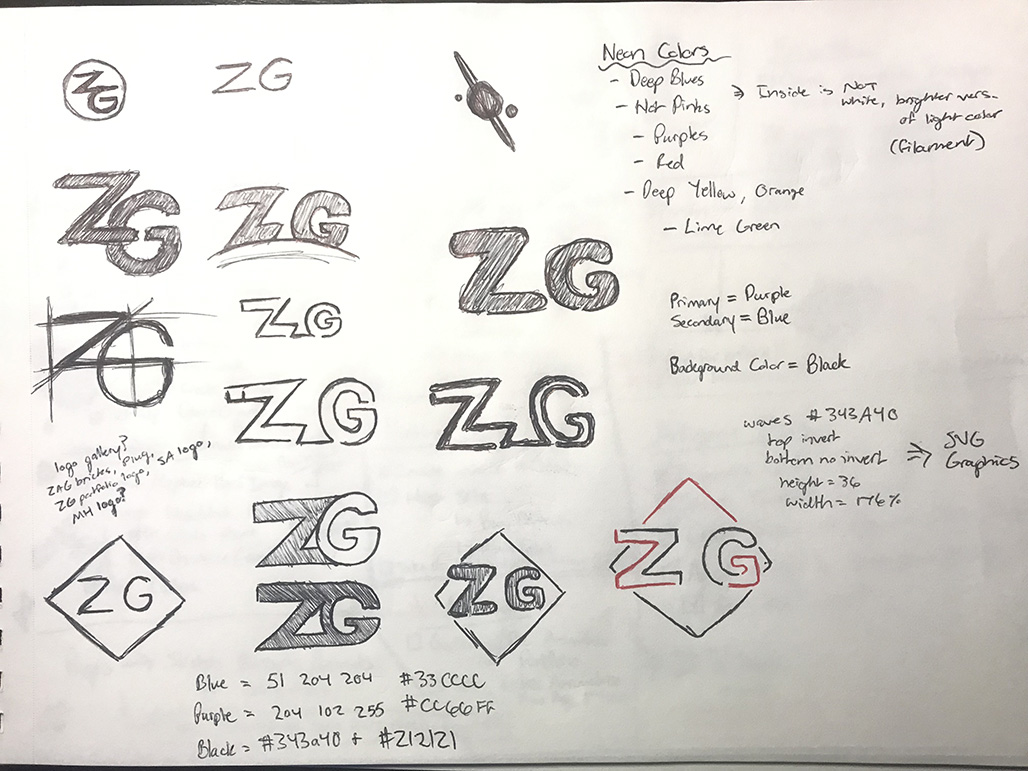 ZG
ZG
Neon Colors
- Deep Blues
- Hot Pinks
- Purples
- Red
- Deep Yellow, Orange
- Lime Green
⇒ Inside is NOT
white, brighter vers-
of light color
(filament)
ZG
ZG
ZG
ZG
ZG
Primary = Purple
Secondary = Blue
Background Color = Black
ZG
ZG
waves #343A40
top invert
bottom no invert
height = 36
width = 176%
⇒ SVG
Graphics
logo gallery?
ZAG bricks, plug,
ZG portfolio logo, SA logo,
MH logo?
ZG
ZG
ZG
ZG
ZG
Blue = 51 204 204 #33CCCC
Purple = 204 102 255 #CC66FF
Black = #343a40 + #212121